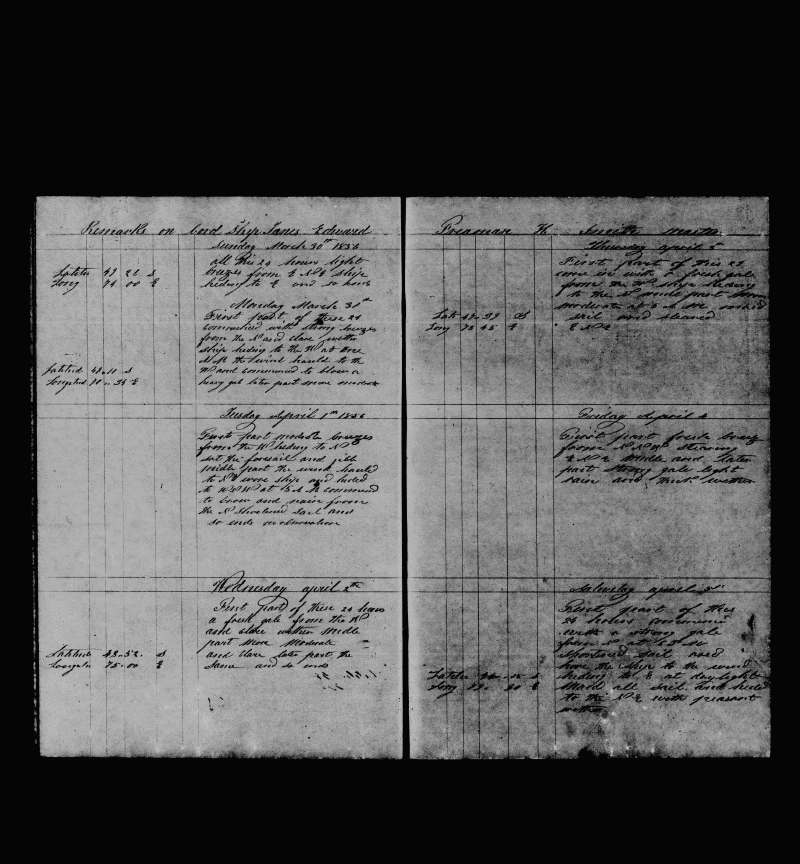 Remarks on bord Ship James Edward
Sunday March 30th 1834
all this 24 hours light
breezes from E N E ship
heding to E and so hend
Latitu 49 26 S
Long 74 00 E
Monday March 31th
First part of these 24
commenced with strong breezes
from the N and clare wether
ship heding to the W at one
the wind hauld to the
W and commenced to blow a
heavy gale later part more modera
Latitud 49-11 S
Longitud 70 - 35 E
Tuesday April 1th 1834
First part moderate breezes
from the W heding to N
set the foresail and jibb
middle part the wind hauld
to N E wore ship and heded
to W N W at 5 A M commenced
to snow and rain from
the N Shortened Sail and
so ends no observation
Wednesday april 2th
First part of these 24 hours
a fresh gale from the W
and clare wether Midle
part More Moderate
and clare later part the
Same and so ends
Latitude 48-52 S
Longitu 75-00 E
Freeman H Smith master
Thursday april 3
First part of this 24
come in with a fresh gale
from the W ship heding
to the N midle part
moderate at 5 A M maid
sail and steared
E N E
Lat 49-39 S
Long 75 45 E
Friday April 4
First part fresh breeze
from N N W Stearing
E N E Midle and later
part strong gale light
rain and thick wether
Saturday april 5
First part of this
24 hours commenced
with a strong gale
from N at
shortened sail and
hove the ship to the wind
heding to E at day light
Maid all sail and hede
to the N E with pleasant
wether
Long 20 E